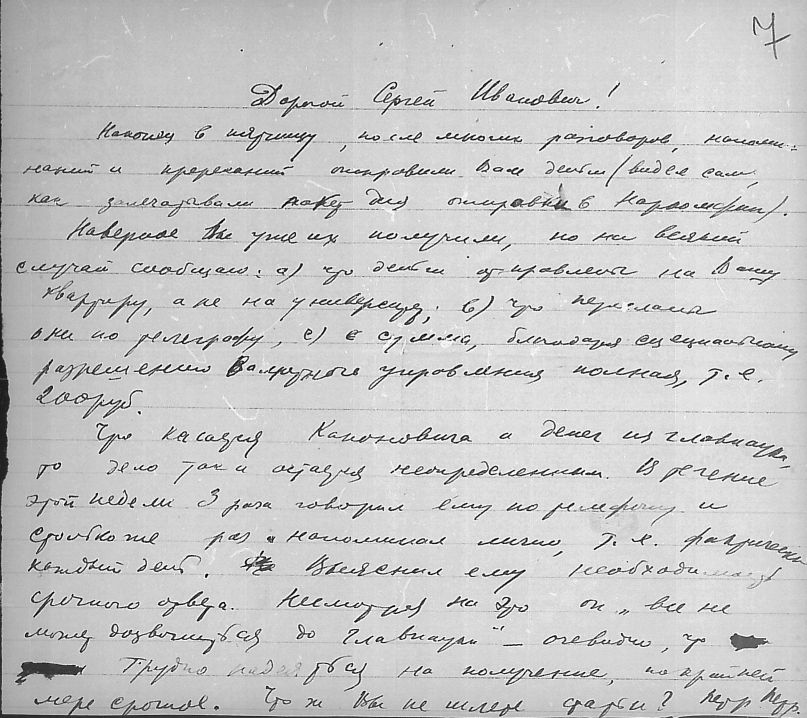 7
Дорогой Сергей Иванович!
Наконец в пятницу, после многих разговоров, напоми-
наний и пререканий отправили Вам деньги (видел сам,
как запечатывали пакет для отправки в Наркомфин).
Наверное Вы уже их получили, но на всякий
случай сообщаю: а) что деньги отправлены на Вашу
квартиру, а не на университет; в) что пересланы
они по телеграфу, с) сумма, благодаря специальному
разрешению Валютного управления полная, т.е.
200 руб.
Что касается Кановича и денег из главнауки,
то дело так и остается неопределенным. В течение
этой недели 3 раза говорил ему по телефону и
столько же раз напоминал лично, т.е. фактически
каждый день. Выяснил ему необходимость
срочного ответа. Несмотря на это он „все не
может дозвониться до главнауки" – очевидно, что
трудно надеяться на получение, по крайней
мере срочное. Что ж Вы не шлете статьи? Петр Петр.